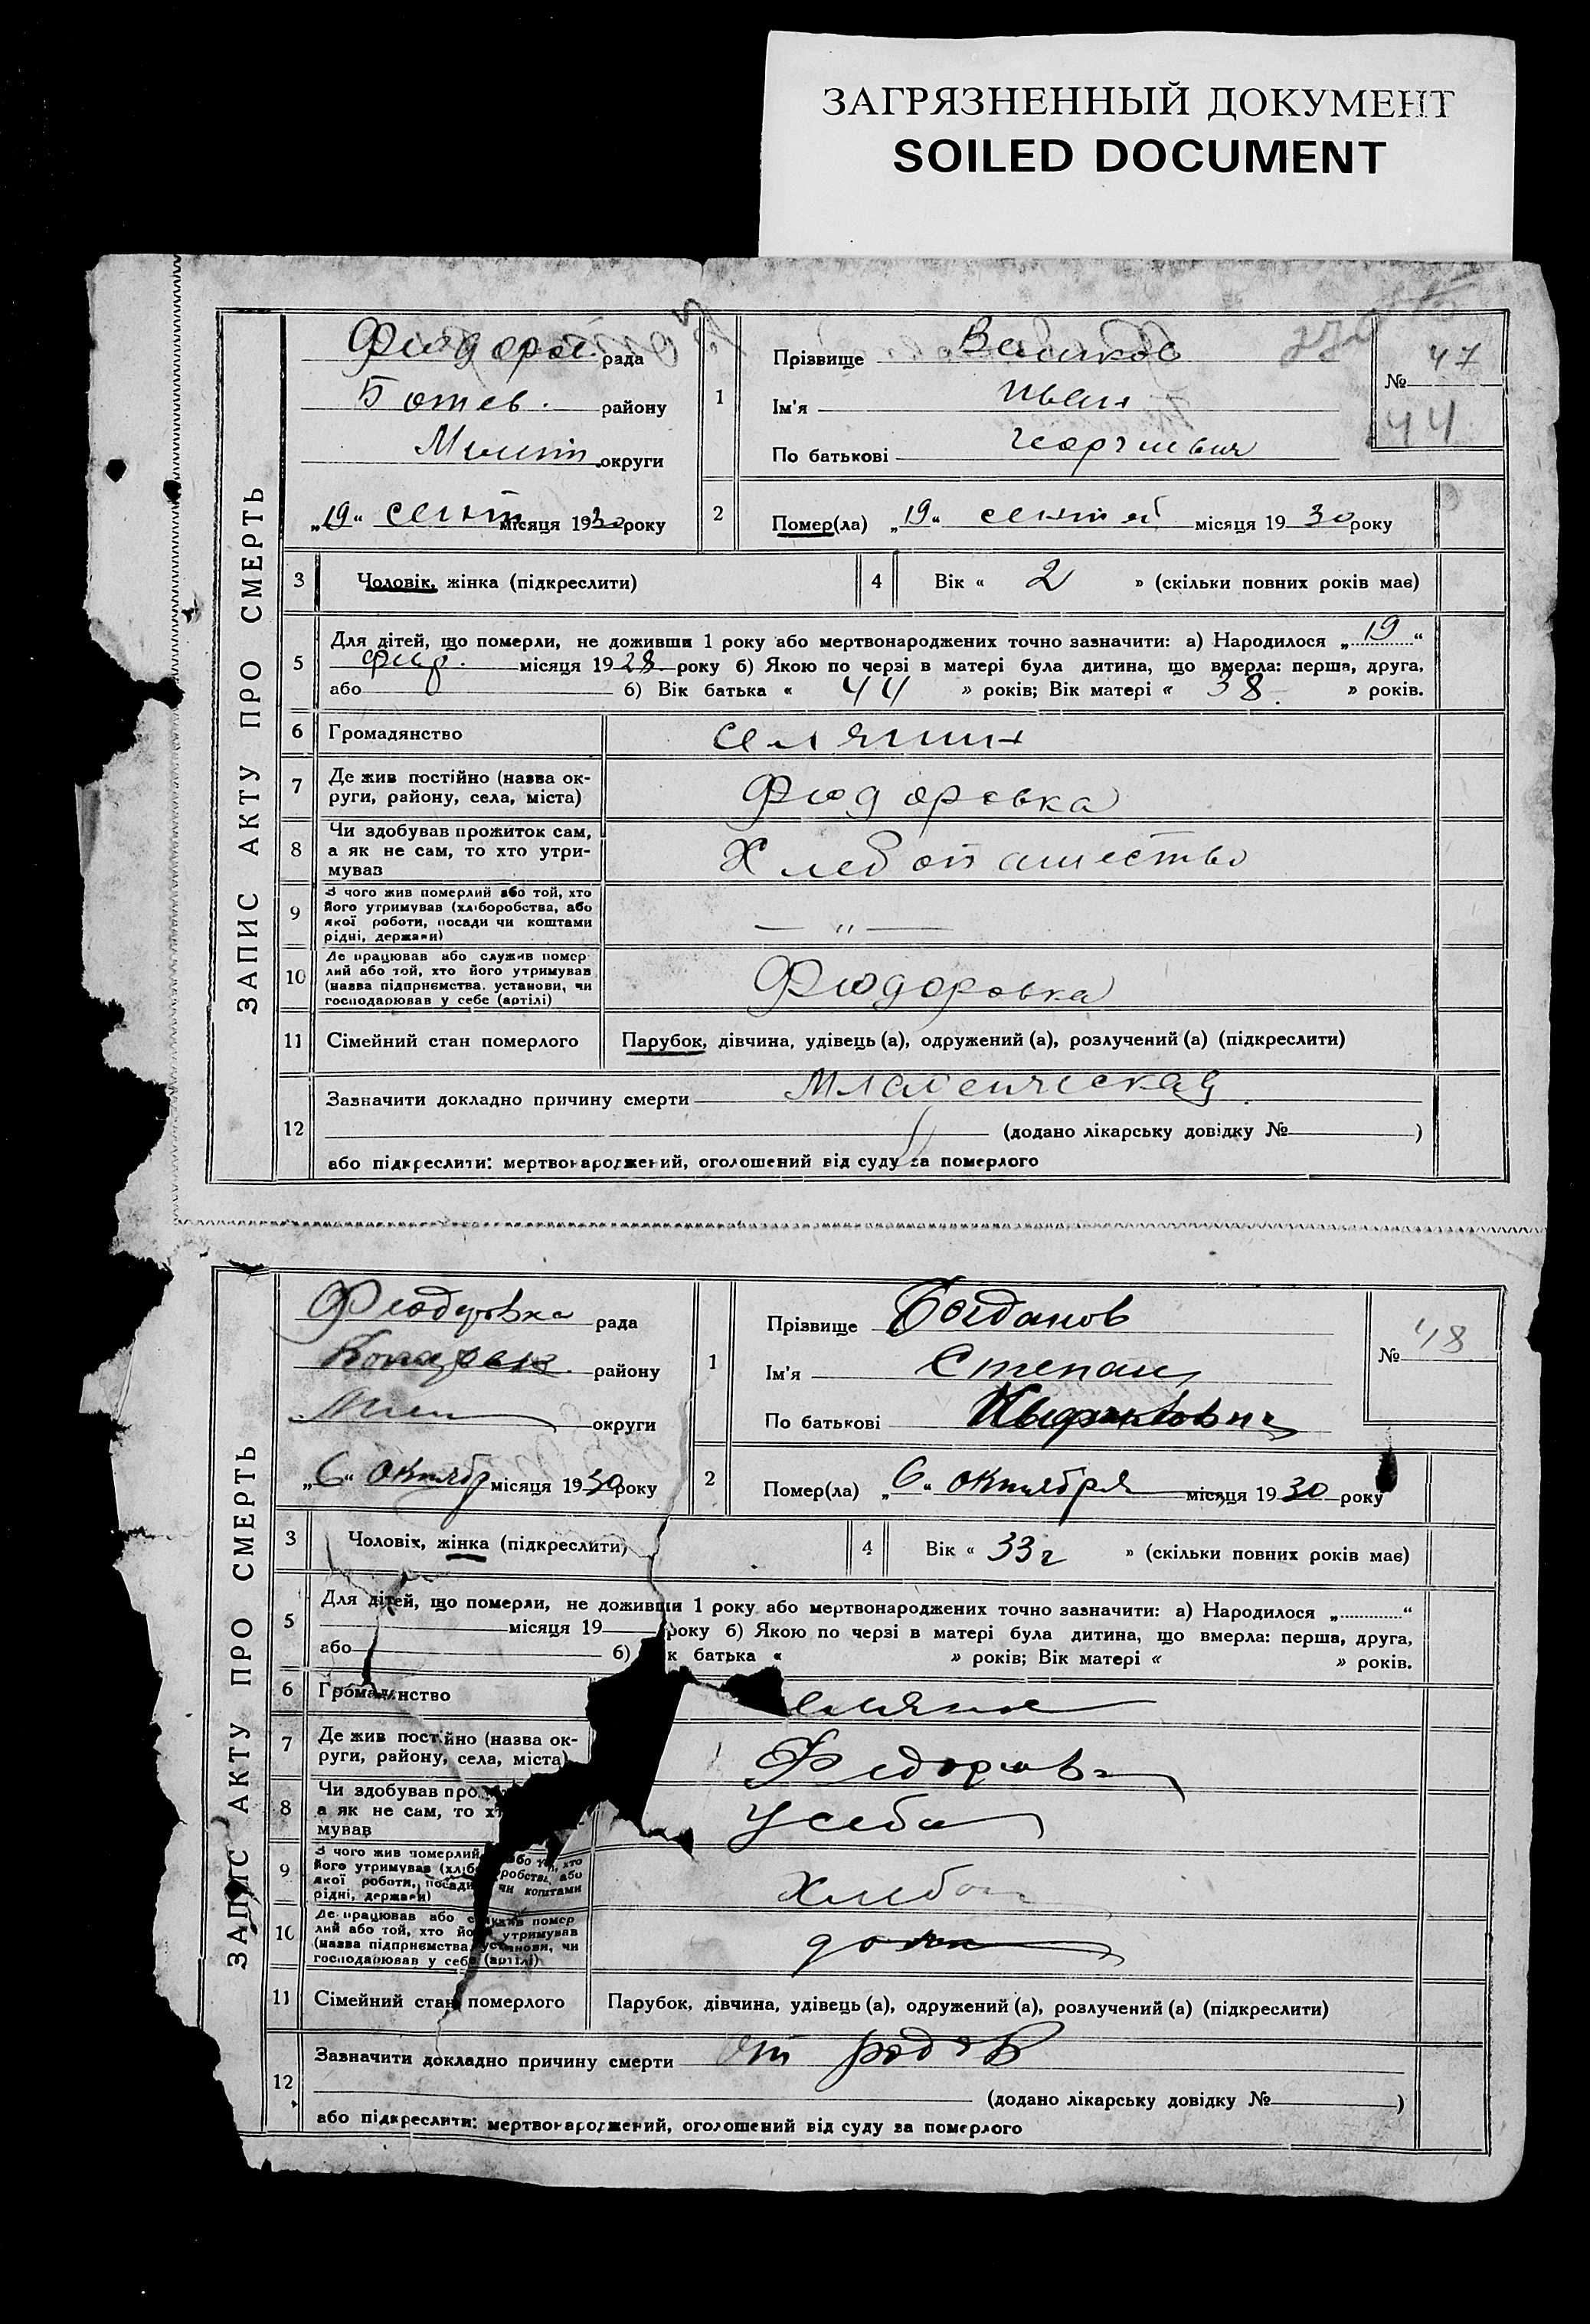 ЗАГРЯЗНЕННЫЙ ДОКУМЕНТ
SOILED DOCUMENT
ЗАПИС АКТУ ПРО СМЕРТЬ
Фюдоров. рада
Ботев. району
Мелит. округи
„19“ сент місяця 1930 року
1
Прізвище Великов
Ім'я Иван
По батькові Георгиевич
№ 47
44
2
Помер(ла) „19“ сентяб. місяця 1930 року
3 Чоловік, жінка (підкреслити)
4 Вік « 2 » (скільки повних років має)
5 Для дітей, що померли, не доживши 1 року або мертвонароджених точно зазначити: а) Народилося „19“
февр. місяця 1928 року б) Якою по черзі в матері була дитина, що вмерла: перша, друга,
або б) Вік батька « 44 » років; Вік матері « 38 » років.
6 Громадянство селянин
7 Де жив постійно (назва ок-
руги, району, села, міста) Фюдоровка
8 Чи здобував прожиток сам,
а як не сам, то хто утри-
мував Хлебопашество
9 З чого жив померлий або той, хто
його утримував (хліборобства, або
якої роботи, посади чи коштами
рідні, держави) — „ —
10 Де працював або служив помер
лий або той, хто його утримував
(назва підприємства, установи, чи
господарював у себе (артілі) Фюдоровка
11 Сімейний стан померлого Парубок, дівчина, удівець (а), одружений (а), розлучений (а) (підкреслити)
12 Зазначити докладно причину смерти Младенческая
(додано лікарську довідку № )
або підкреслити: мертвонароджений, оголошений від суду за померлого
ЗАПИС АКТУ ПРО СМЕРТЬ
Фюодоровка рада
району
округи
„6“ Октябр місяця 1930 року
1
Прізвище Богданов
Ім'я Степан
По батькові
№ 48
2
Помер(ла) „6“ октября місяця 1930 року
3 Чоловік, жінка (підкреслити)
4 Вік « 33 г » (скільки повних років має)
5 Для дітей, що померли, не доживши 1 року або мертвонароджених точно зазначити: а) Народилося „ “
місяця 19 року б) Якою по черзі в матері була дитина, що вмерла: перша, друга,
або б) к батька « » років; Вік матері « » років.
6 Громадянство
7 Де жив постійно (назва ок-
руги, району, села, міста) Федоровка
8 Чи здобував про
а як не сам, то х
мував у себе
9 З чого жив померлий або той, хто
його утримував (хліборобства, або
якої роботи, посади чи коштами
рідні, держави) Хлебоп
10 Де працював або служив помер
лий або той, хто його утримував
(назва підприємства, установи, чи
господарював у себе (артілі) дома
11 Сімейний стан померлого Парубок, дівчина, удівець (а), одружений (а), розлучений (а) (підкреслити)
12 Зазначити докладно причину смерти от родов
(додано лікарську довідку № )
або підкреслити: мертвонароджений, оголошений від суду за померлого